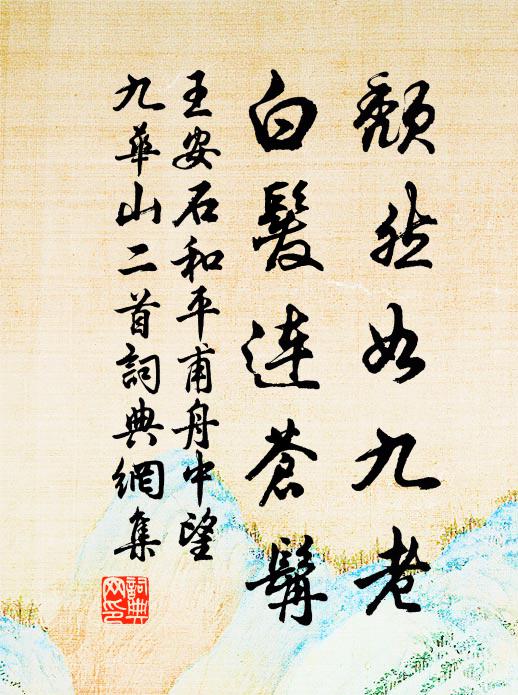 頹然如九老
白髮連蒼髯
王安石和平甫舟中望
九華山二首詞典網集
詞典
网印